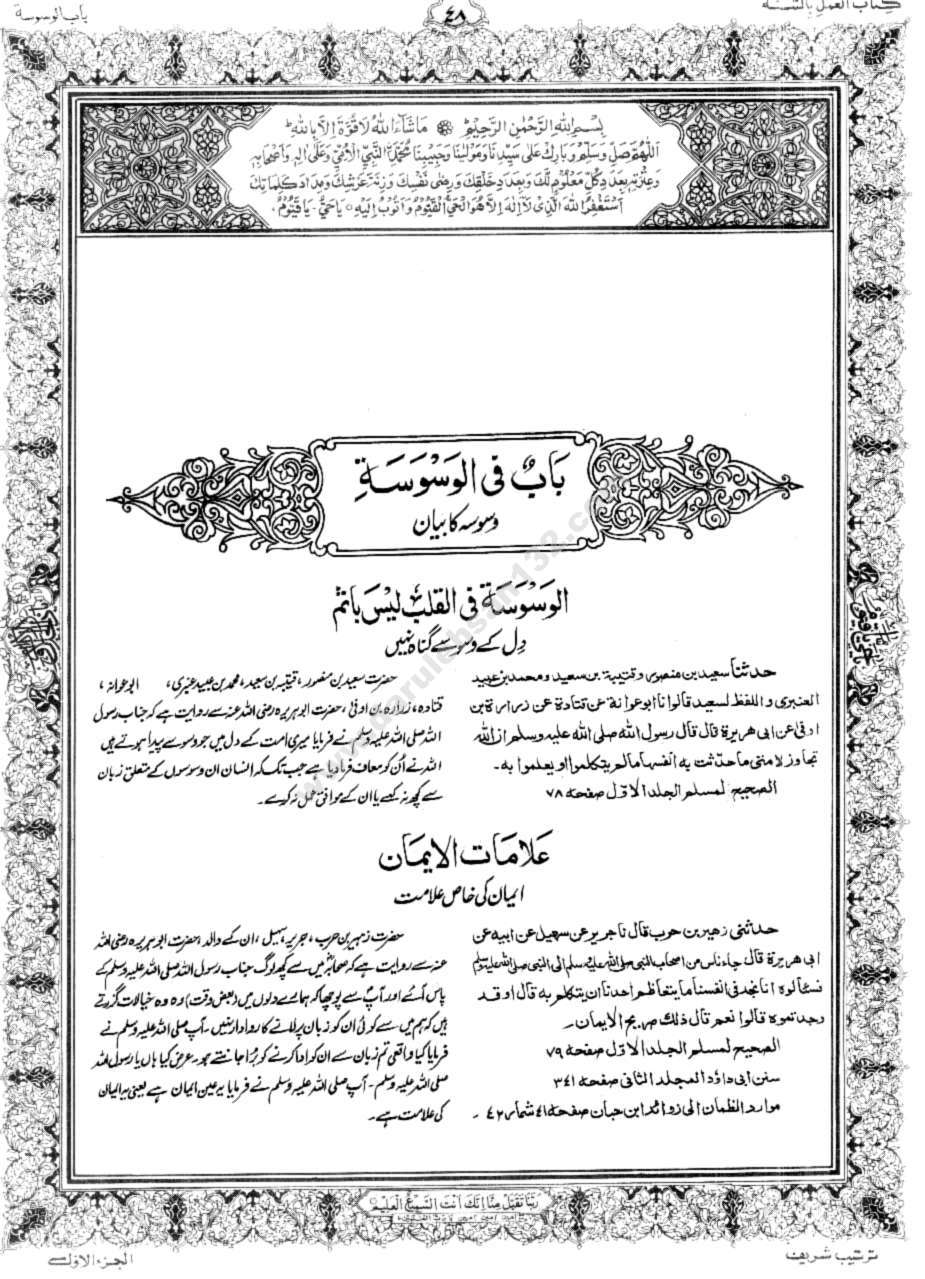 کتاب العمل بالسنة
٤٨
باب الوسوسة
بِسْمِ اللهِ الرَّحْمٰنِ الرَّحِيْمِ مَاشَاءَ اللهُ لَا قُوَّةَ اِلَّا بِاللهِ
اَللّٰهُمَّ صَلِّ وَسَلِّمْ وَبَارِكْ عَلٰى سَيِّدِنَا وَمَوْلٰينَا وَحَبِيْبِنَا مُحَمَّدِ النَّبِيِّ الْاُمِّيِّ وَعَلٰى اٰلِهٖ وَاَصْحَابِهٖ
وَعِتْرَتِهٖ بِعَدَدِ كُلِّ مَعْلُوْمٍ لَّكَ وَبِعَدَدِ خَلْقِكَ وَرِضٰى نَفْسِكَ وَزِنَةَ عَرْشِكَ وَمِدَادَ كَلِمَاتِكَ
اَسْتَغْفِرُ اللهَ الَّذِيْ لَآ اِلٰهَ اِلَّا هُوَ الْحَيُّ الْقَيُّوْمُ وَاَتُوْبُ اِلَيْهِ یَا حَيُّ - یَا قَيُّوْمُ
بَابٌ فِى الوَسْوَسَةِ
وسوسہ کا بیان
الوَسْوَسَة فى القلب ليس باثم
دل کے وسوسے گناہ نہیں
حدثنا سعيد بن منصور وقتيبة بن سعيد ومحمد بن عبيد
العنبرى واللفظ لسعيد قالوا نا ابو عوانة عن قتادة عن زرارة بن
اوفى عن ابى هريرة قال قال رسول الله صلى الله عليه وسلم ان الله
تجاوز لامتى ما حدثت به انفسها مالم يتكلموا او يعملوا به۔
الصحيح لمسلم الجلد الاول صفحة ٧٨
حضرت سعید بن منصور، قتیبہ بن سعید، محمد بن عبید عنبری، ابوعوانہ،
قتادہ، زرارہ بن اوفٰی، حضرت ابوہریرہ رضی اللہ عنہ سے روایت ہے کہ جناب رسول
اللہ صلی اللہ علیہ وسلم نے فرمایا میری امت کے دل میں جو وسوسے پیدا ہوتے ہیں
اللہ نے اُن کو معاف فرما دیا ہے جب تک کہ انسان ان وسوسوں کے متعلق زبان
سے کچھ نہ کہے یا ان کے موافق عمل نہ کرے۔
عَلامَات الایمَان
ایمان کی خاص علامت
حدثنى زهير بن حرب قال نا جرير عن سهيل عن ابيه عن
ابى هريرة قال جاء ناس من اصحاب النبى صلى الله عليه وسلم الى النبى صلى الله عليه وسلم
فسئالوه انا نجد فى انفسنا ما يتعاظم احدنا ان يتكلم به قال او قد
وجدتموه قالوا نعم قال ذلك صريح الايمان۔
الصحيح لمسلم الجلد الاول صفحة ٧٩
سنن ابى داؤد المجلد الثانى صفحة ٣٤١
موارد الظمان الى زوائد ابن حبان صفحة ٤١ شمار ٤٢ -
حضرت زہیر بن حرب، جریر، سہیل، ان کے والد، حضرت ابوہریرہ رضی اللہ
عنہ سے روایت ہے کہ صحابہؓ میں سے کچھ لوگ جناب رسول اللہ صلی اللہ علیہ وسلم کے
پاس آئے اور آپؐ سے پوچھا کہ ہمارے دلوں میں (بعض وقت) وہ وہ خیالات گزرتے
ہیں کہ ہم میں سے کوئی ان کو زبان پر لانے کا روادار نہیں۔ آپ صلی اللہ علیہ وسلم نے
فرمایا کیا واقعی تم زبان سے ان کو ادا کرنے کو بُرا جانتے ہو۔ عرض کیا ہاں یا رسول اللہ
صلی اللہ علیہ وسلم - آپ صلی اللہ علیہ وسلم نے فرمایا یہ عین ایمان ہے یعنی یہ ایمان
کی علامت ہے۔
رَبَّنَا تَقَبَّلْ مِنَّا اِنَّكَ اَنْتَ السَّمِيْعُ الْعَلِيْمُ
ترتیب شریف
الجزء الاول